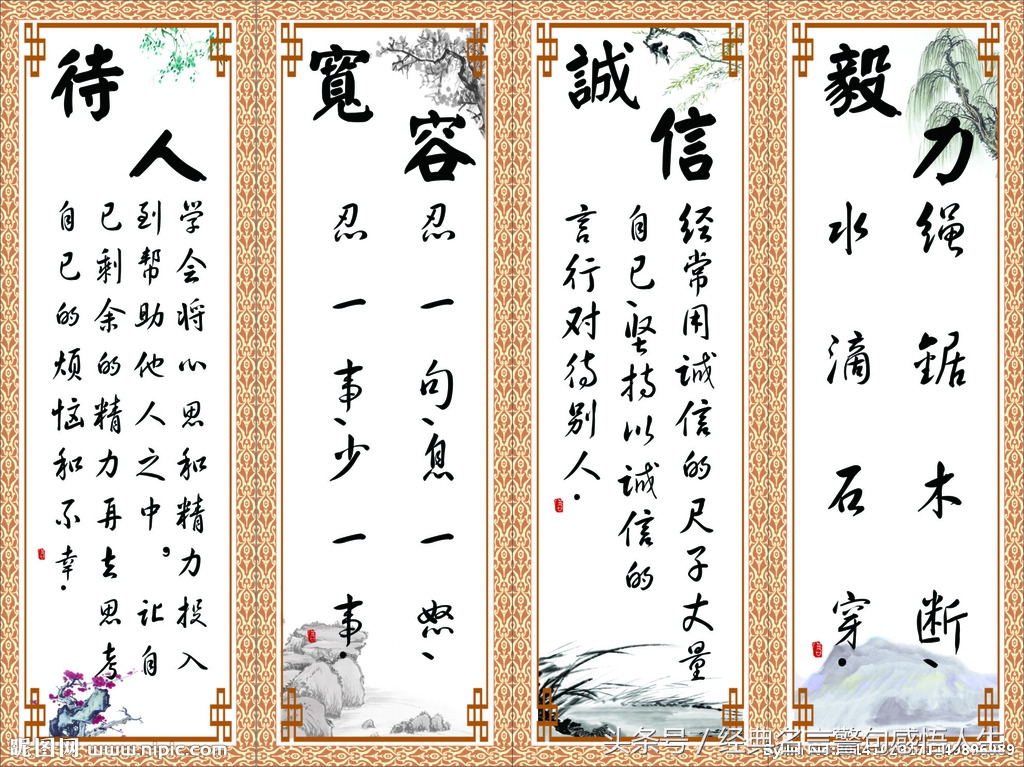 待人
学会将心思和精力投入
到帮助他人之中，让自
己剩余的精力再去思考
自己的烦恼和不幸.
寬容
忍一句、息一怒、
忍一事、少一事.
誠信
经常用诚信的尺子丈量
自己、坚持以诚信的
言行对待别人.
毅力
绳锯木断、
水滴石穿.
昵图网 www.nipic.com
头条号 / 经典名言警句感悟人生